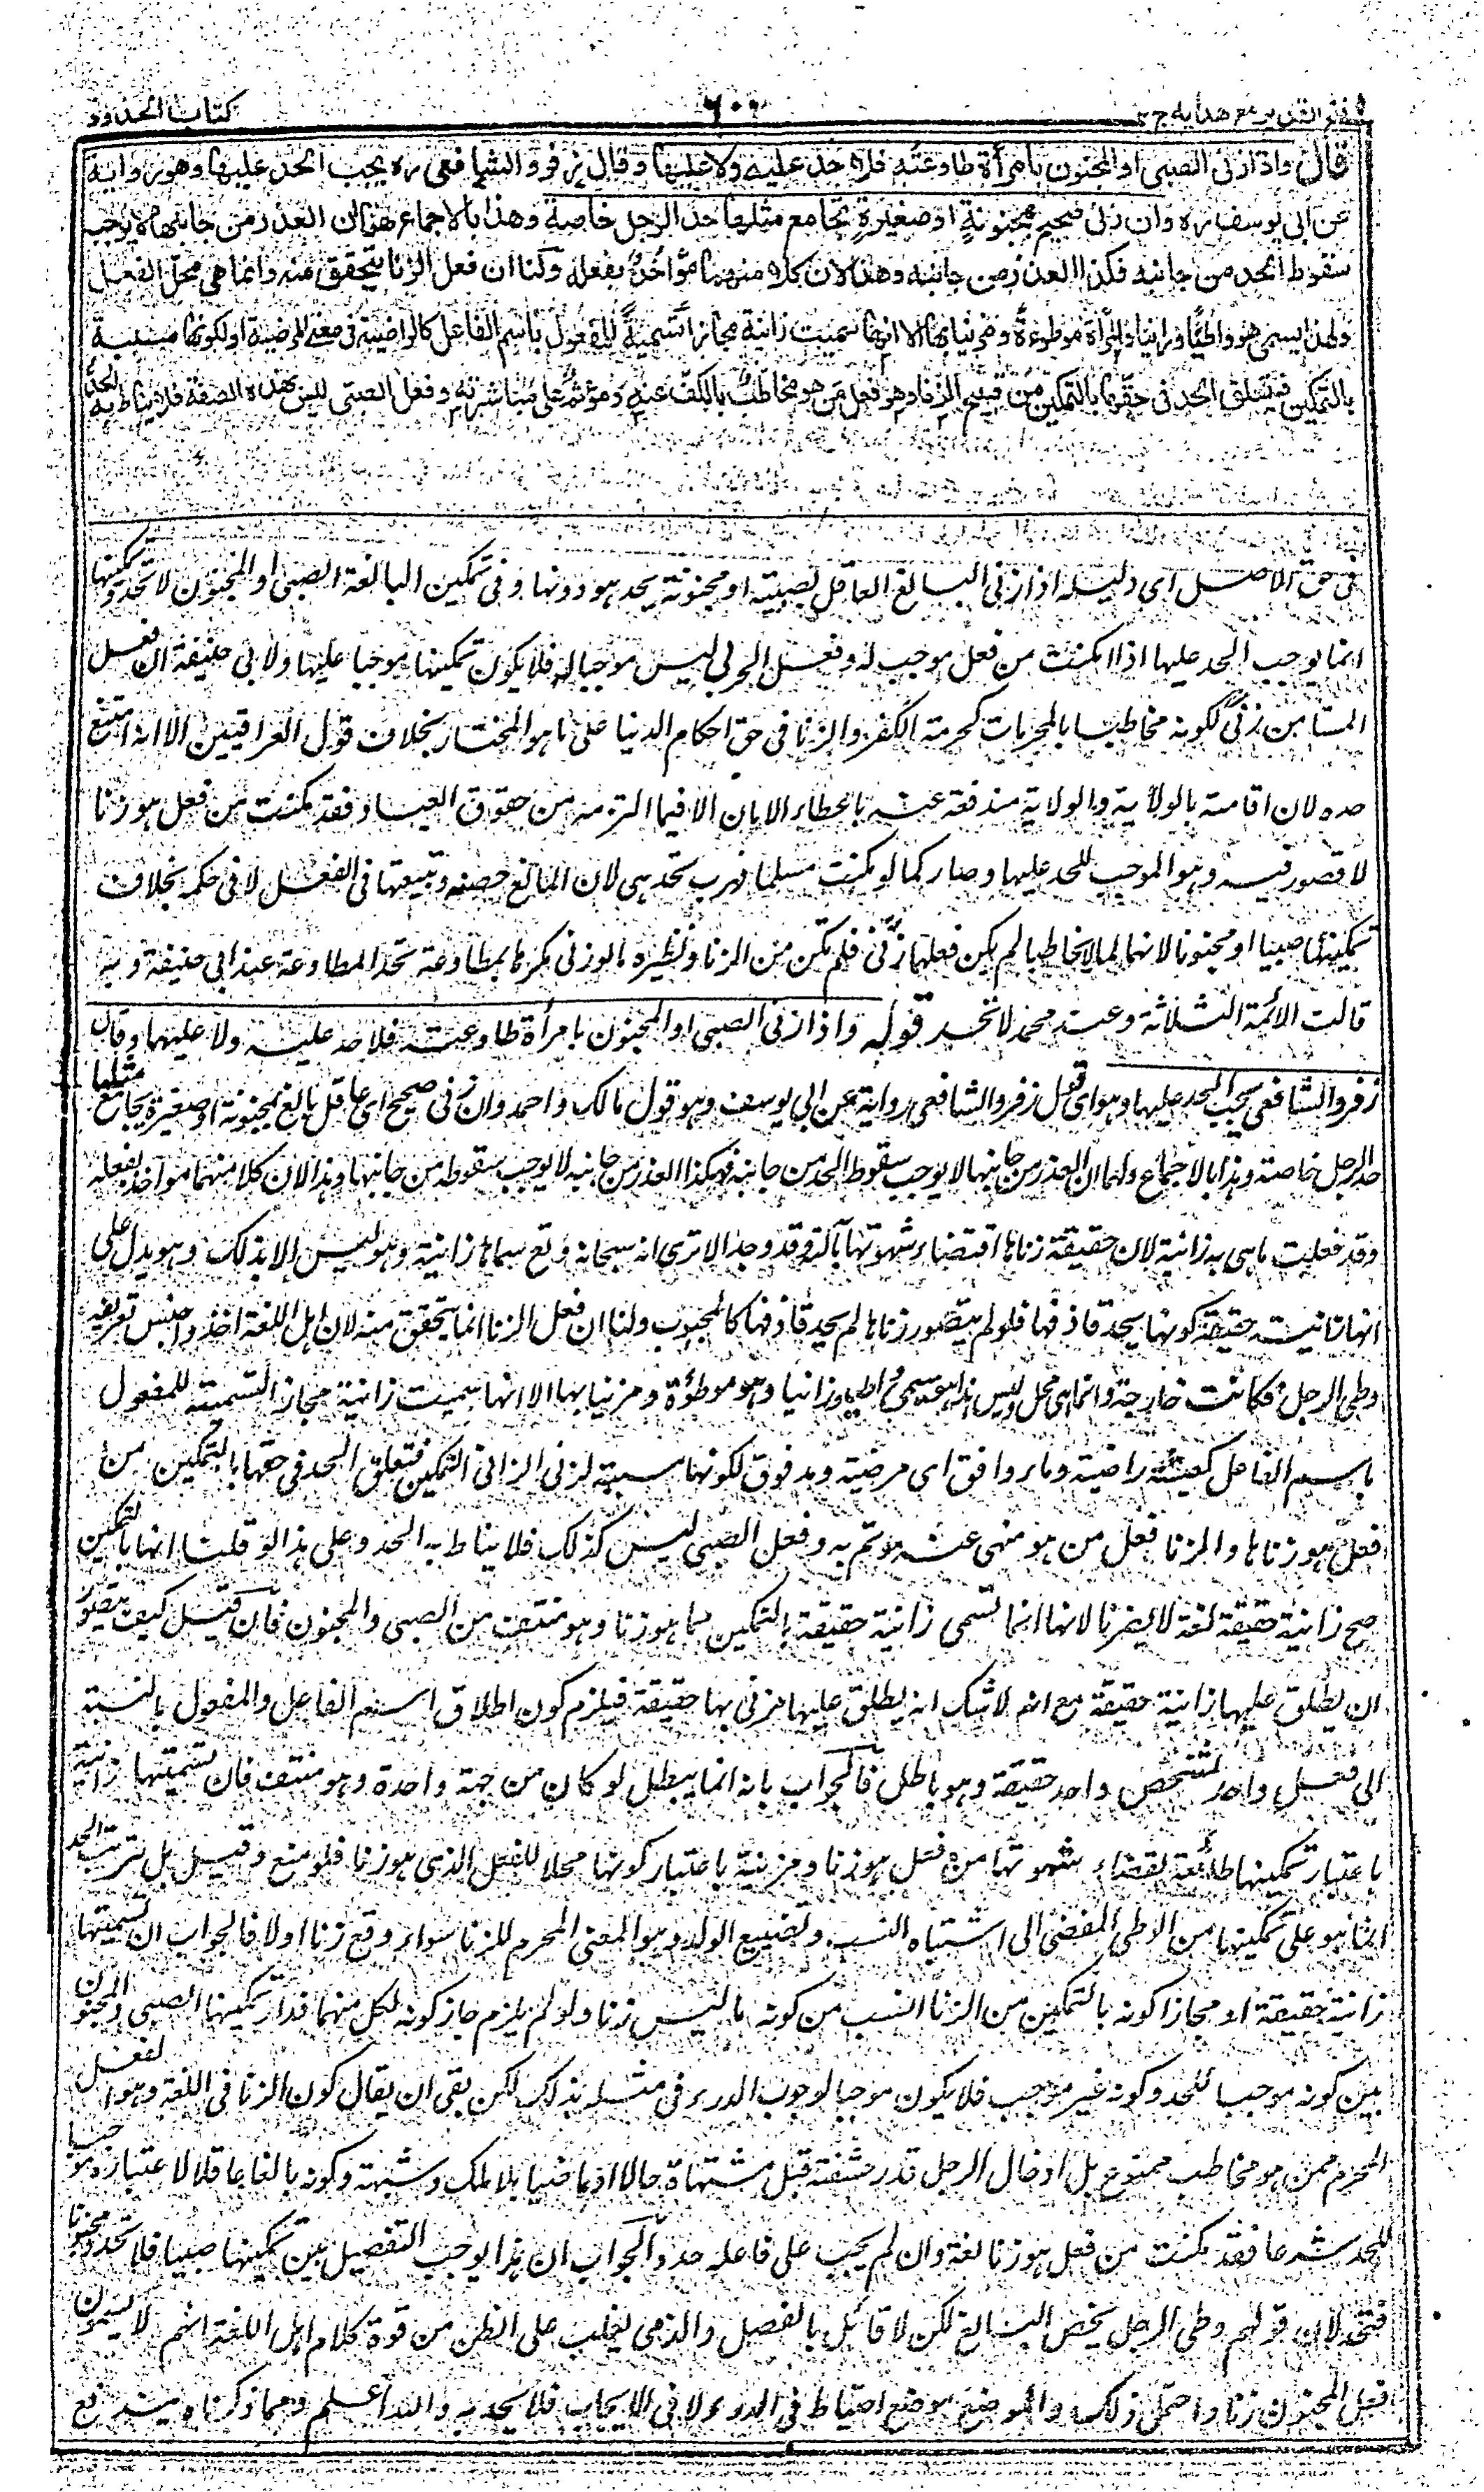 فتح القدير مع هدايه ج ٢
٦٠٠
كتاب الحدود
قال واذا زنى الصبى او المجنون بامرأة طاوعته فلا حد عليه ولا عليها وقال زفر والشافعى ره يجب الحد عليها وهو رواية
عن ابى يوسف ره وان زنى صحيح بمجنونة او صغيرة تجامع مثلها حد الرجل خاصة وهذا بالاجماع لهما ان العذر من جانبها لا يوجب
سقوط الحد من جانبه فكذا العذر من جانبه وهذا لان كلا منهما مؤاخذ بفعله ولنا ان فعل الزنا يتحقق منه وانما هى محل الفعل
ولهذا يسمى هو واطيا وزانيا والمرأة موطوءة ومزنيا بها الا انها سميت زانية مجازا تسمية للمفعول باسم الفاعل كالراضية فى معنى المرضية او لكونها مسببة
بالتمكين فيتعلق الحد فى حقها بالتمكين من قبيح الزنا وهو فعل من هو مخاطب بالكف عنه ومؤثم على مباشرته وفعل الصبى ليس بهذه الصفة فلا يناط به الحد
فى حق الاصل اى دليله اذا زنى البالغ العاقل بصبية او مجنونة يحد هو دونها وفى تمكين البالغة الصبى او المجنون لا تحد وتمكينها
انما يوجب الحد عليها اذا امكنت من فعل موجب له وفعل الحربى ليس موجبا له فلا يكون تمكينها موجبا عليها ولابى حنيفة ان فعل
المستامن زنى لكونه مخاطبا بالمحرمات كحرمة الكفر والزنا فى حق احكام الدنيا على ما هو المختار بخلاف قول العراقيين الا انه امتنع
حده لان اقامته بالولاية والولاية مندفعة عنه باعطاء الامان الا فيما التزمه من حقوق العباد فقد مكنت من فعل هو زنا
لا قصور فيه وهو الموجب للحد عليها وصار كما لو مكنت مسلما فهرب تحد هى لان المانع خصه وتبعيتها فى الفعل لا فى حكمه بخلاف
تمكينها صبيا او مجنونا لانهما لما لم يخاطبا لم يكن فعلهما زنى فلم تمكن من الزنا ونظيره ما لو زنى مكرها بمطاوعة تحد المطاوعة عند ابى حنيفة وبه
قالت الائمة الثلاثة وعند محمد لا تحد قوله واذا زنى الصبى او المجنون بامرأة طاوعته فلا حد عليه ولا عليها وقال
زفر والشافعى يجب الحد عليها وهو اى قول زفر والشافعى رواية عن ابى يوسف وهو قول مالك واحمد وان زنى صحيح اى عاقل بالغ بمجنونة او صغيرة يجامع مثلها
حد الرجل خاصة وهذا بالاجماع ولهما ان العذر من جانبها لا يوجب سقوط الحد من جانبه فهكذا العذر من جانبه لا يوجب سقوطه من جانبها وهذا لان كلا منهما مواخذ بفعله
وقد فعلت ما هى به زانية لان حقيقة زناها اقتضاء شهوتها بآلته وقد وجد الا ترى انه سبحانه وتعالى سماها زانية وهو ليس الا بذلك وهو يدل على
انها زانية حقيقة كونها يحد قاذفها فلو لم يتصور زناها لم يحد قاذفها كالمجبوب ولنا ان فعل الزنا انما يتحقق منه لان اهل اللغة اخذوا جنس تعريفه
وطى الرجل فكانت خارجة وانما هى محل وليس لهذا هو يسمى واطيا وزانيا وهو موطوءة ومزنيا بها الا انها سميت زانية مجازا لتسميته للمفعول
باسم الفاعل كعيشة راضية وماء دافق اى مرضية ومدفوق لكونها مسببة لزنى الزانى التمكين فتعلق الحد فى حقها بالتمكين من
فعل هو زناها والزنا فعل من هو منهى عنه موثم به وفعل الصبى ليس كذلك فلا يناط به الحد وعلى هذا لو قلنا انها بالتمكين
صح زانية حقيقة لغة لا يضرنا لانها انما تسمى زانية حقيقة بالتمكين مما هو زنا وهو منتف من الصبى والمجنون فان قيل كيف يتصور
ان يطلق عليها زانية حقيقة مع انه لا شك انه يطلق عليها مزنى بها حقيقة فيلزم كون اطلاق اسم الفاعل والمفعول بالنسبة
الى فعل واحد لشخص واحد حقيقة وهو باطل فالجواب بانه انما يبطل لو كان من جهة واحدة وهو منتف فان تسميتها زانية
باعتبار تمكينها طائعة لقضاء شهوتها من فعل هو زنا ومزنية باعتبار كونها محلا للفعل الذى هو زنا فلو منع وقيل بل ترتب الحد
انما هو على تمكينها من الوطى المفضى الى اشتباه النسب وتضييع الولد وهو المعنى المحرم للزنا سواء وقع زنا او لا فالجواب ان تسميتها
زانية حقيقة او مجازا كونه بالتمكين من الزنا انسب من كونه ما ليس زنا ولو لم يلزم جاز كونه لكل منهما فدار تمكينها الصبى والمجنون
بين كونه موجبا للحد وكونه غير موجب فلا يكون موجبا لوجوب الدرء فى مثله بذلك لكن بقى ان يقال كون الزنا فى اللغة وهو الفعل
المحرم ممن هو مخاطب ممنوع بل ادخال الرجل قدر حشفته قبل مشتهاة حالا او ماضيا بلا ملك وشبهة وكونه بالغا عاقلا لاعتباره موجبا
للحد شرعا فقد مكنت من فعل هو زنا لغة وان لم يجب على فاعله حد والجواب ان هذا يوجب التفصيل بين تمكينها صبيا فلا تحد ومجنونا
فتحد لان قولهم وطى الرجل يخص البالغ لكن لا قائل بالفصل والذى يغلب على الظن من قوة كلام اهل اللغة انهم لا يسمون
فعل المجنون زنا واحتمل ذلك والموضع موضع احتياط فى الدرء لا فى الايجاب فلا يحد به والله اعلم ومما ذكرناه يندفع